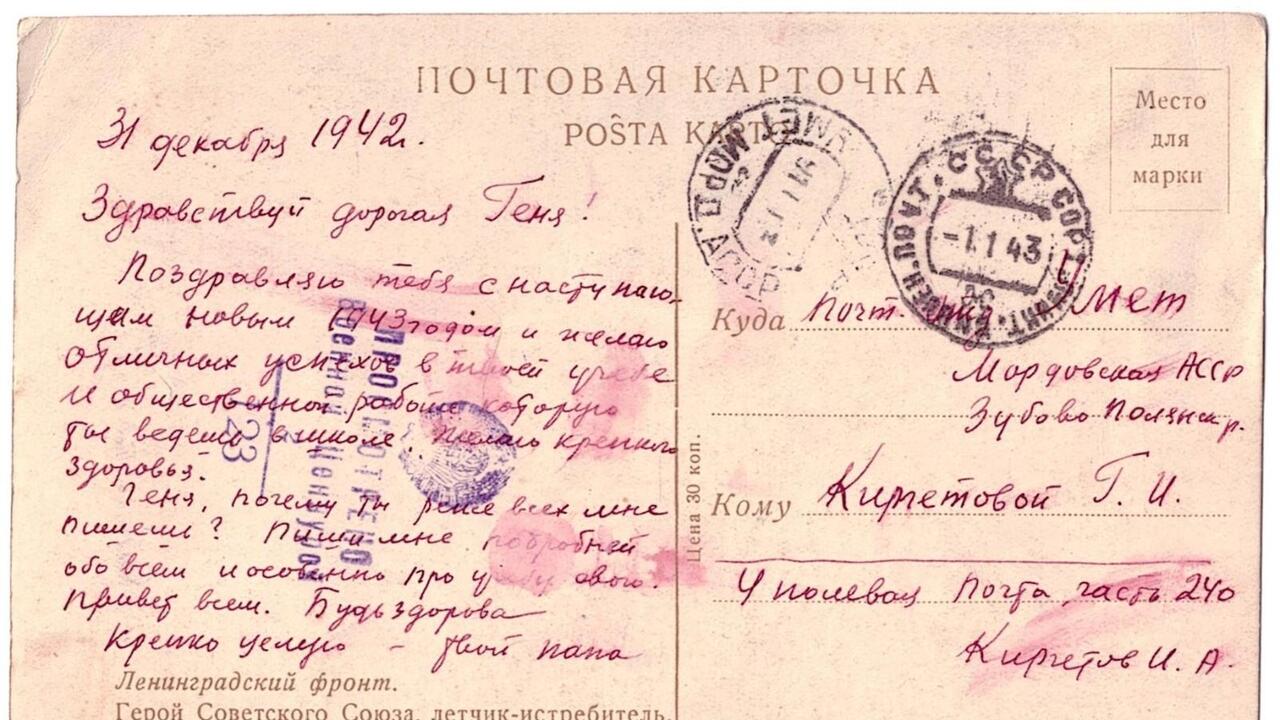 ПОЧТОВАЯ КАРТОЧКА
POŜTA KARTO
Место
для
марки
31 декабря 1942г.
Здравствуй дорогая Геня!
Поздравляю тебя с наступаю-
щим новым 1943 годом и желаю
отличных успехов в твоей учебе
и общественной работе которую
ты ведешь в школе. Желаю крепкого
здоровья.
Геня, почему ты реже всех мне
пишешь? Пиши мне подробней
обо всем и особенно про учебу свою.
Привет всем. Будь здорова
Крепко целую - твой папа
ПРОСМОТРЕНО
Военной Цензурой
223
УМЕТ МОРД. АССР
СССР
-1 1 43
Куда Почт. отд Умет
Мордовская АССР
Зубово Полянск р.
Кому Кирпетовой Г. И.
Цена 30 коп.
4 полевая почта часть 240
И. А.
Ленинградский фронт.
Герой Советского Союза, летчик-истребитель,